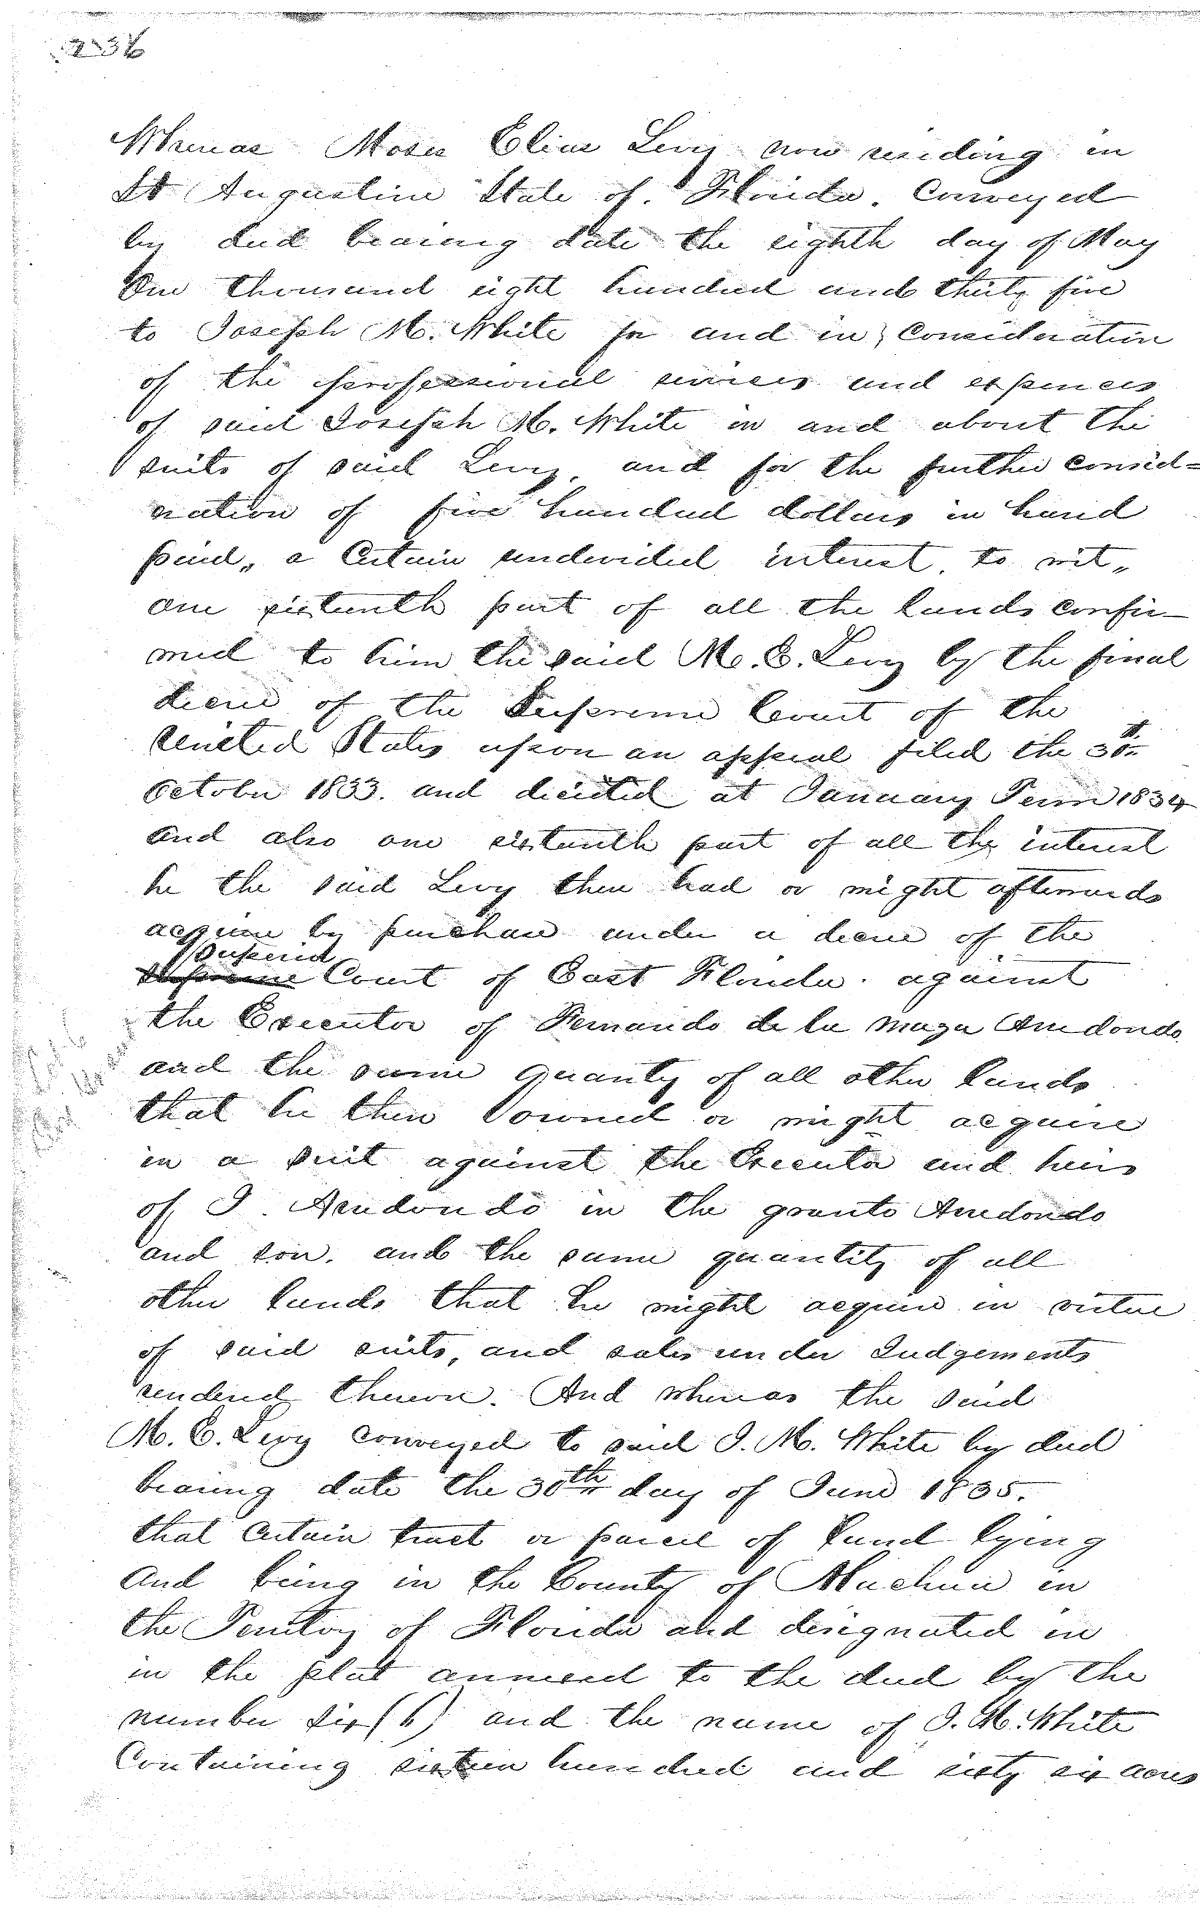 236
Whereas Moses Elias Levy now residing in
St Augustine State of Florida. Conveyed
by deed bearing date the eighth day of May
One thousand eight hundred and thirty five
to Joseph M. White for and in consideration
of the professional services and expences
of said Joseph M. White in and about the
suits of said Levy, and for the further consid=
eration of five hundred dollars in hand
paid, a Certain undivided interest, to wit,
one sixteenth part of all the lands confir-
med to him the said M. E. Levy by the final
decree of the Supreme Court of the
United States upon an appeal filed the 30th
October 1833. and decided at January Term 1834
and also one sixteenth part of all the interest
he the said Levy then had or might afterwards
acquire by purchase under a decree of the
Superior
Supreme Court of East Florida. against
the Executor of Fernando de la Maza Arredondo
and the same quanty of all other lands
that he then owned or might acquire
in a suit against the Executor and heirs
of J. Arredondo in the grants Arredondo
and son. and the same quantity of all
other lands that he might acquire in virtue
of said suits, and sales under Judgements
rendered thereon. And whereas the said
M. E. Levy conveyed to said J. M. White by deed
bearing date the 30th day of June 1835.
that certain tract or parcel of land lying
and being in the County of Alachua in
the Territory of Florida and designated in
in the plat annexed to the deed by the
number six (6) and the name of J. M. White
Containing sixteen hundred and sixty six acres